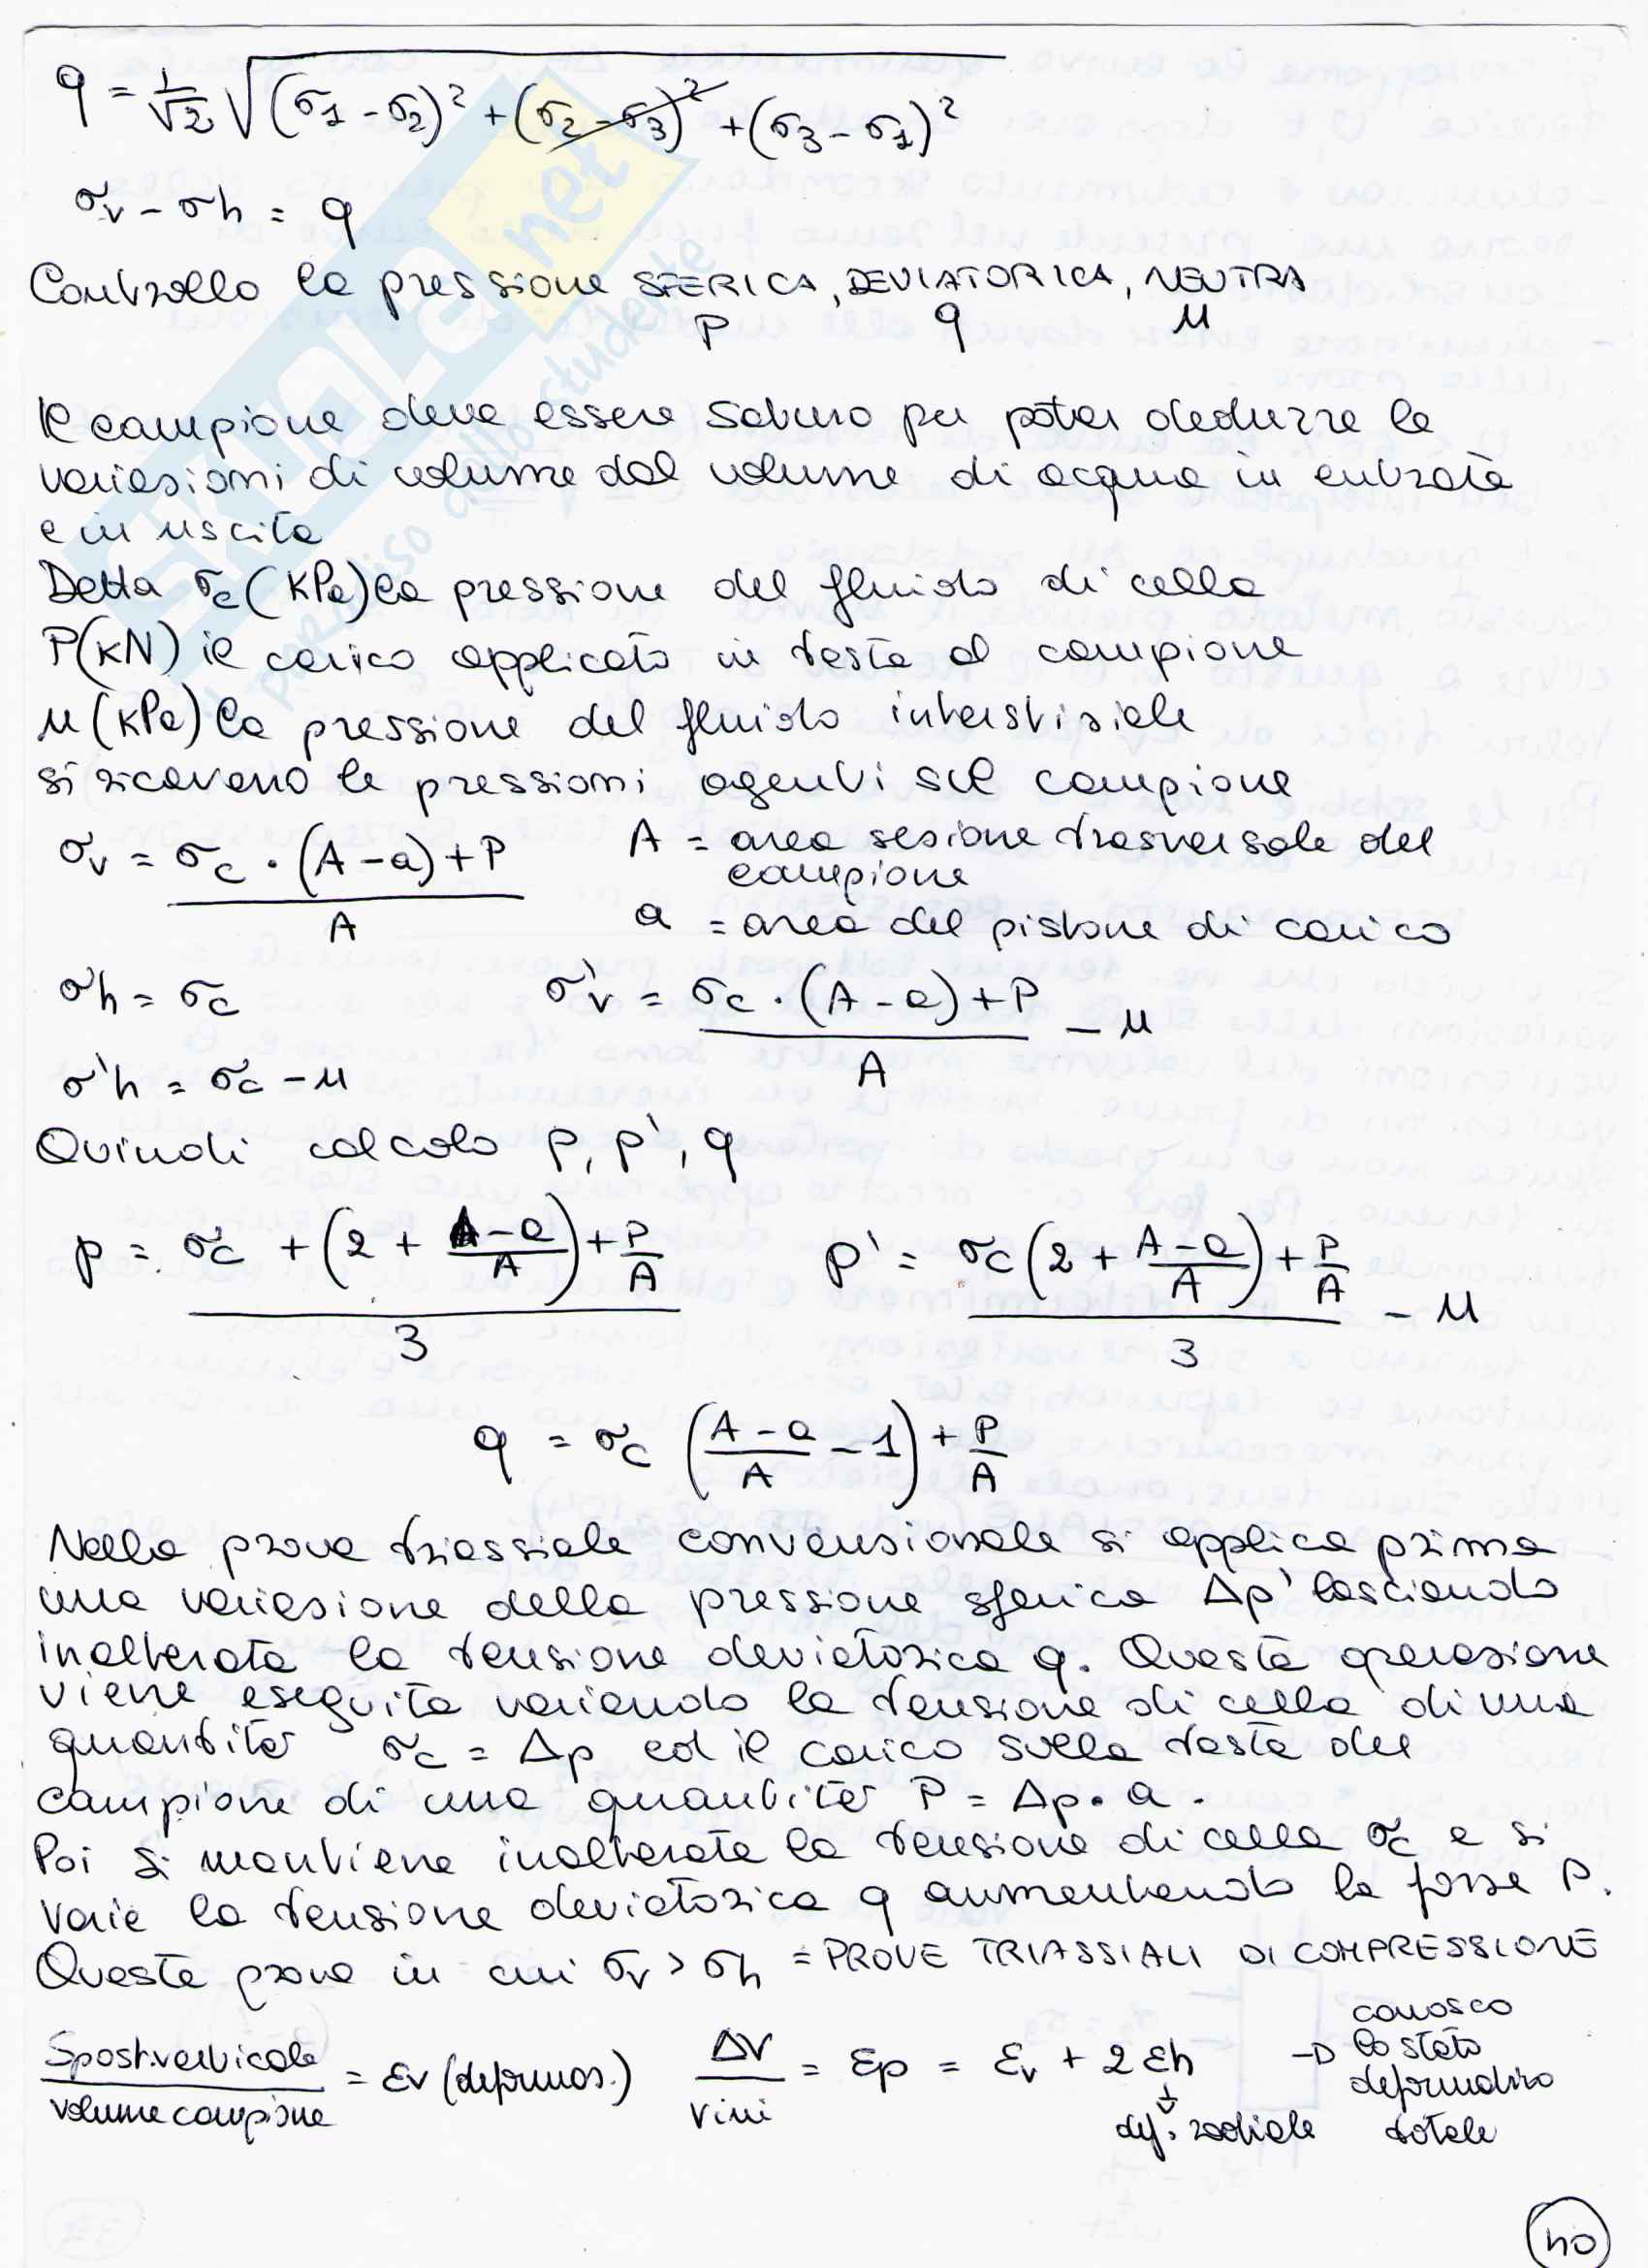 q = 1/√2 √((σ1 - σ2)² + (σ2 - σ3)² + (σ3 - σ1)²)
σv - σh = q
Controllo la pressione SFERICA, DEVIATORICA, NEUTRA
p q u
Il campione deve essere saturo per poter dedurre le
variazioni di volume dal volume di acqua in entrata
e in uscita
Detta σc (KPa) la pressione del fluido di cella
P(KN) il carico applicato in testa al campione
u (KPa) la pressione del fluido interstiziale
si ricavano le pressioni agenti sul campione
σv = σc · (A - a) + P / A A = area sezione trasversale del
campione
a = area del pistone di carico
σh = σc σ'v = σc · (A - a) + P / A - u
σ'h = σc - u
Quindi calcolo p, p', q
p = σc + (2 + A - a / A) + P/A / 3 p' = σc (2 + A - a / A) + P/A / 3 - u
q = σc (A - a / A - 1) + P/A
Nella prova triassiale convenzionale si applica prima
una variazione della pressione sferica Δp' lasciando
inalterata la tensione deviatorica q. Questa operazione
viene eseguita variando la tensione di cella di una
quantità σc = Δp ed il carico sulla testa del
campione di una quantità P = Δp · a.
Poi si mantiene inalterata la tensione di cella σc e si
varia la tensione deviatorica q aumentando la forza P.
Queste prove in cui σv > σh = PROVE TRIASSIALI DI COMPRESSIONE
Spost. verticale / volume campione = εv (deformaz.) ΔV / Vini = εp = εv + 2 εh → conosco
lo stato
deformativo
totale
def. radiale
40
SKUOLA.net
il paradiso dello studente